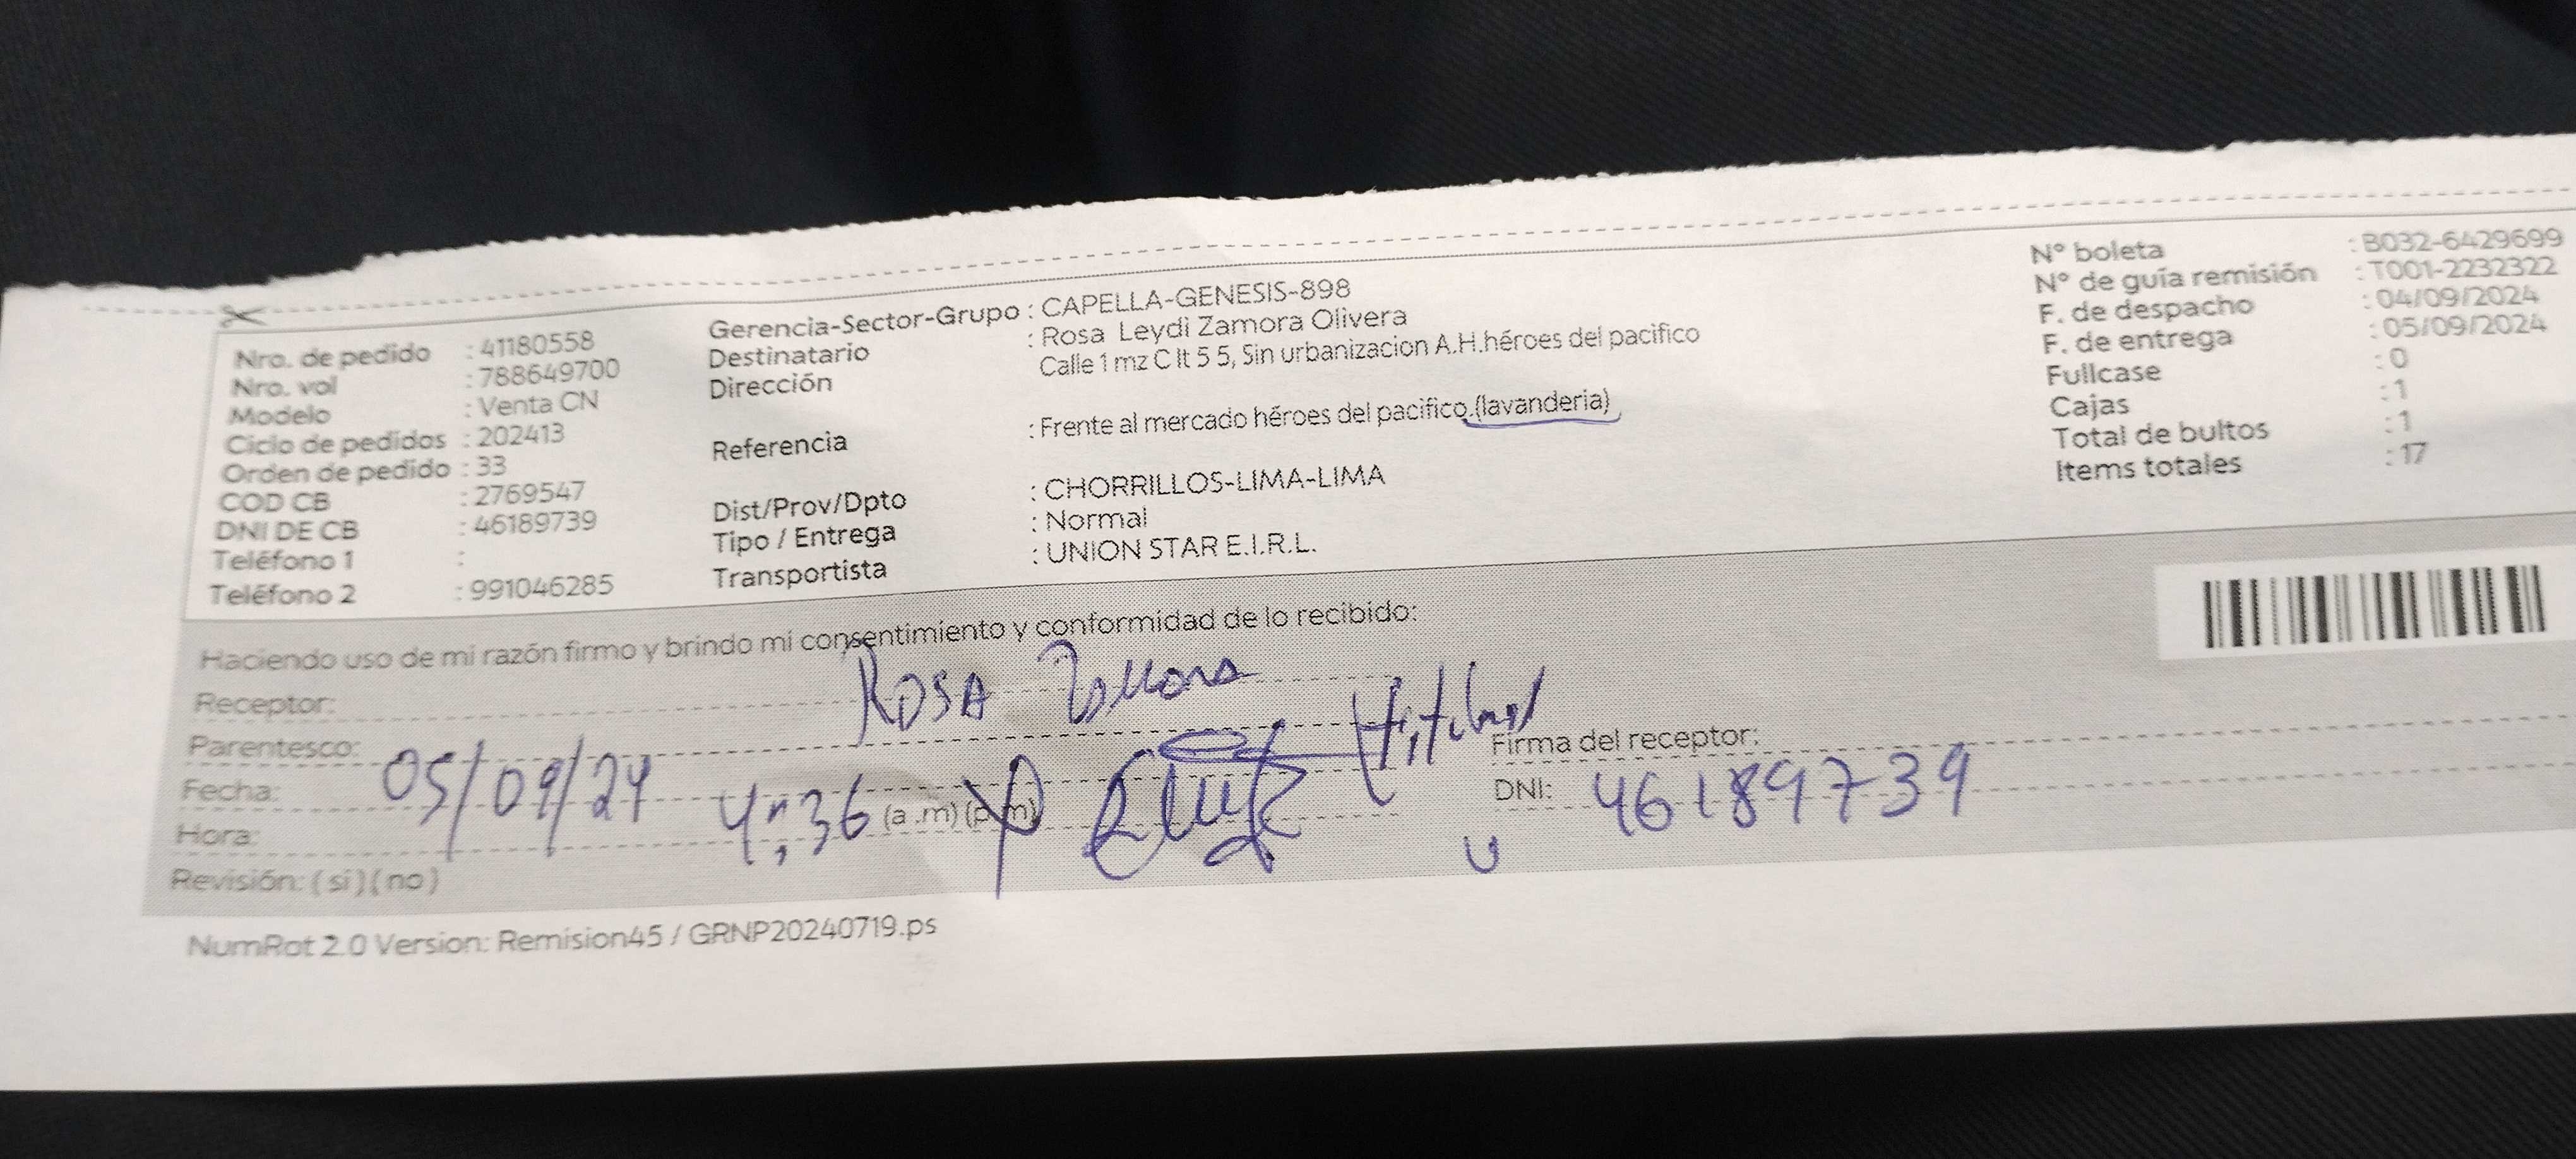 Nro. de pedido : 41180558
Nro. vol : 788649700
Modelo : Venta CN
Ciclo de pedidos : 202413
Orden de pedido : 33
COD CB : 2769547
DNI DE CB : 46189739
Teléfono 1 :
Teléfono 2 : 991046285
Gerencia-Sector-Grupo : CAPELLA-GENESIS-898
Destinatario : Rosa Leydi Zamora Olivera
Dirección Calle 1 mz C lt 5 5, Sin urbanizacion A.H.héroes del pacifico
Referencia : Frente al mercado héroes del pacifico.(lavanderia)
Dist/Prov/Dpto : CHORRILLOS-LIMA-LIMA
Tipo / Entrega : Normal
Transportista : UNION STAR E.I.R.L.
N° boleta : B032-6429699
N° de guía remisión : T001-2232322
F. de despacho : 04/09/2024
F. de entrega : 05/09/2024
Fullcase : 0
Cajas : 1
Total de bultos : 1
Items totales : 17
Haciendo uso de mi razón firmo y brindo mi consentimiento y conformidad de lo recibido:
Receptor: Rosa Zamora
Parentesco: titular
Fecha: 05/09/24
Hora: 4:36 (a .m) (p.m)
Revisión: ( si ) ( no )
Firma del receptor:
DNI: 46189739
NumRot 2.0 Version: Remision45 / GRNP20240719.ps